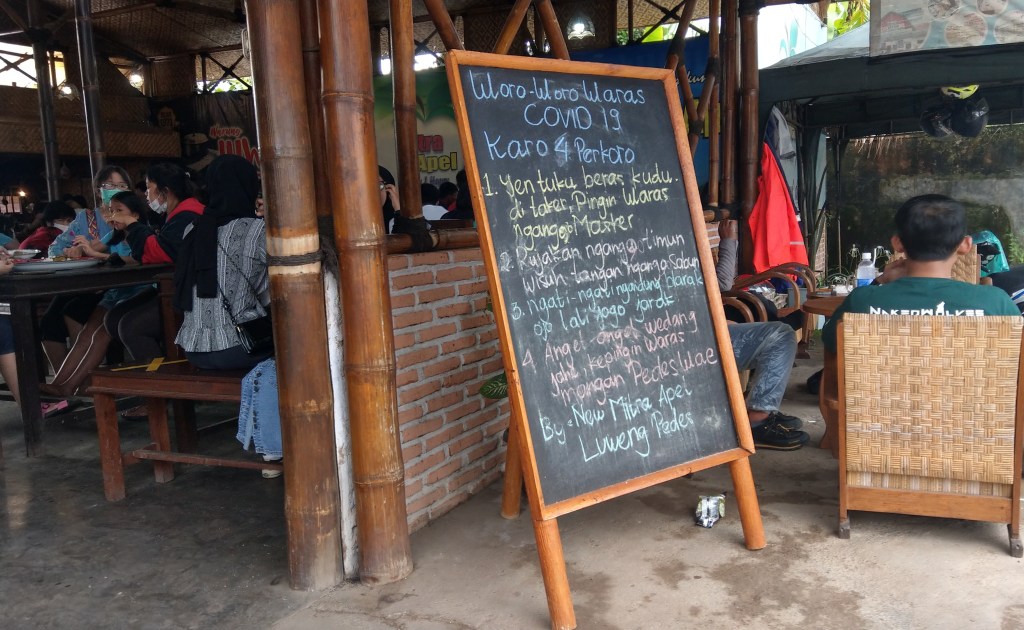 Woro-Woro-Waras
COVID 19
Karo 4 Perkoro
1. Yen tuku beras kudu
di taker, Pingin Waras
nganggo Masker
2. Rujakan nganggo timun
Wisuh tangan nganggo Sabun
3. Ngati-ngati ngandung plarak
ojo lali jogo jarak
4. Angel-angel wedang
jahe, kepingin waras
mangan Pedes Wae
By: New Mitra Apel
Luweng Pedes
NAKERWOLKES
tra
Apel